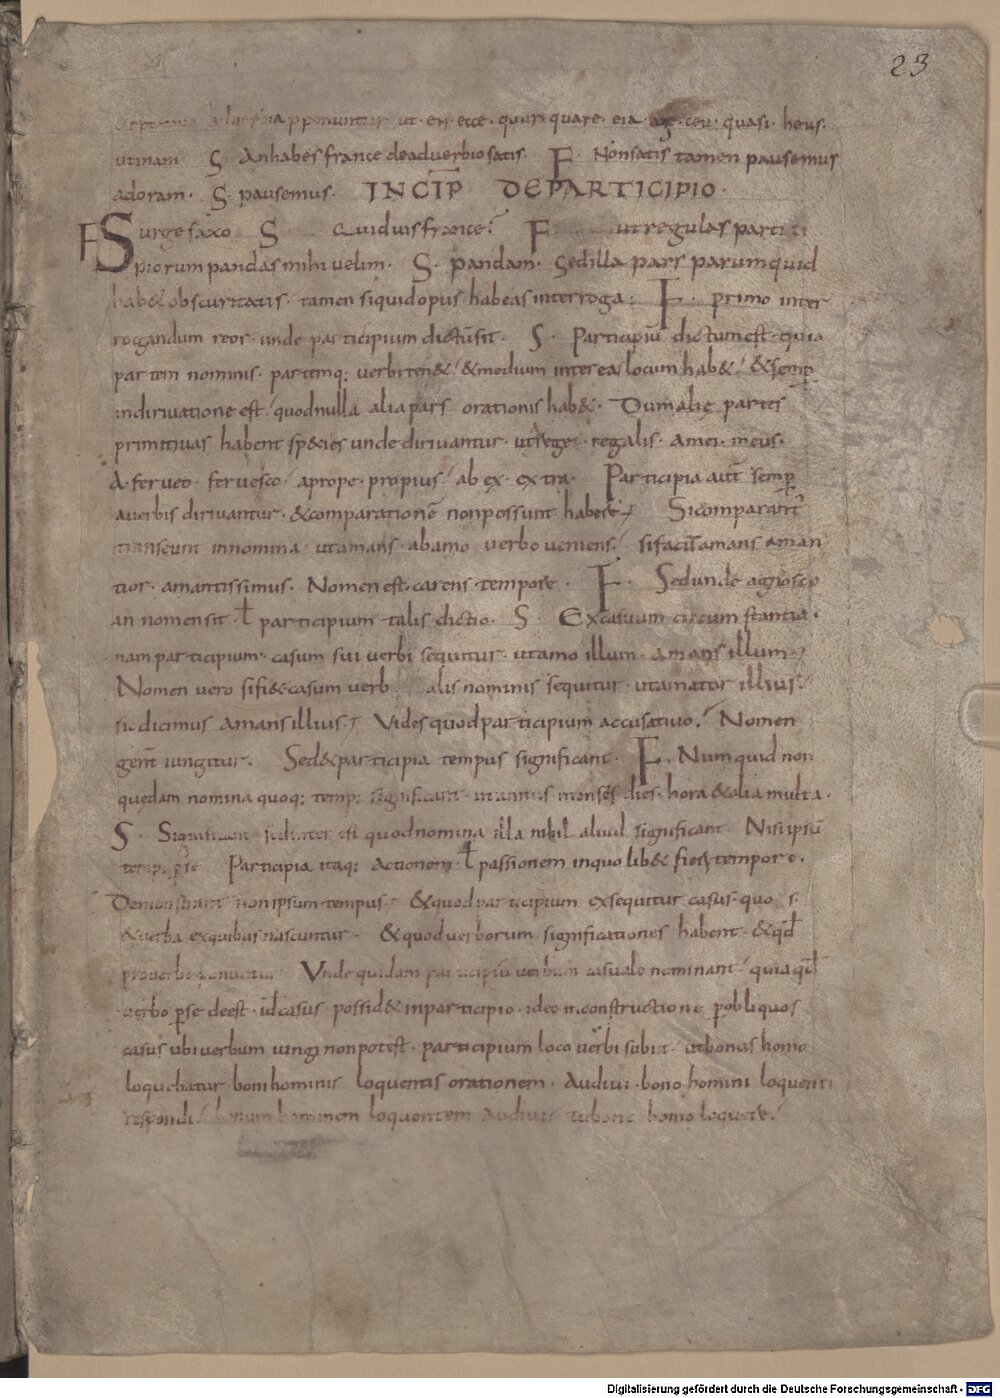 23
pponuntur ut en ecce. quur. quare. eia. age. ceu. quasi. heus.
utinam S. An habes france deadverbio satis. F. Non satis tamen pausemus
adoram. S. pausemus. INCIP DE PARTICIPIO.
F Surge saxo S Quid vis france? F ut regulas parti
piorum pandas mihi velim. S. pandam. Sed illa pars parum quid
hab& obscuritatis. tamen siquid opus habeas interroga; F. primo inter
rogandum reor. unde participium dictū sit. S. Participiū dictum est. quia
partem nominis. partemq; verbi ten&. & medium inter ea locum hab&. & semp
in dirivatione est. quod nulla alia pars orationis hab&. Dum alie partes
primitivas habent sp&ies unde dirivantur. ut rege. regalis. amei. meus.
A ferveo. fervesco. aprope. propius. ab ex. extra. Participia aut̄ semp
averbis dirivantur. & comparationē non possunt habere; Si comparant
transeunt in nomina. ut amans. ab amo verbo veniens. si facis amans aman
tior. amantissimus. Nomen est. carens tempore. F. Sed unde agnosco
an nomen sit. ł participium talis dictio. S. Ex casuum circumstantia.
nam participium. casum sui verbi sequitur. ut amo illum. amans illum;
Nomen vero si fi& casum verb alis nominis sequitur. ut amator illius.
sic dicimus amans illius; Vides quod participium accusativo. Nomen
gen̄t iungitur. Sed & participia tempus significant. F. Numquid non
quedam nomina quoq; temp; significant. ut annus menses dies. hora & alia multa.
S. Significant sed inter est quod nomina illa nihil aliud significant. Nisi ipsū
temp; p se Participia itaq; actionem. ł passionem in quolib& fieri tempore.
Demonstrant non ipsum tempus; & quod participium exsequitur casus. quos
& verba ex quibus nascuntur. & quod verborum significationes habent. & qđ
pro verbo ponuntur Unde quidam participiū verbum casuale nominant. quia qđ
verbo p se deest. id casus possid& in participio. ideo in constructione p obliquos
casus ubi verbum iungi non potest. participium loco verbi subiit. ut bonus homo
loquebatur. boni hominis loquentis orationem. Audivi. bono homini loquenti
respondi. bonum hominem loquentem audivi. bone homo loquere.
Digitalisierung gefördert durch die Deutsche Forschungsgemeinschaft - DFG